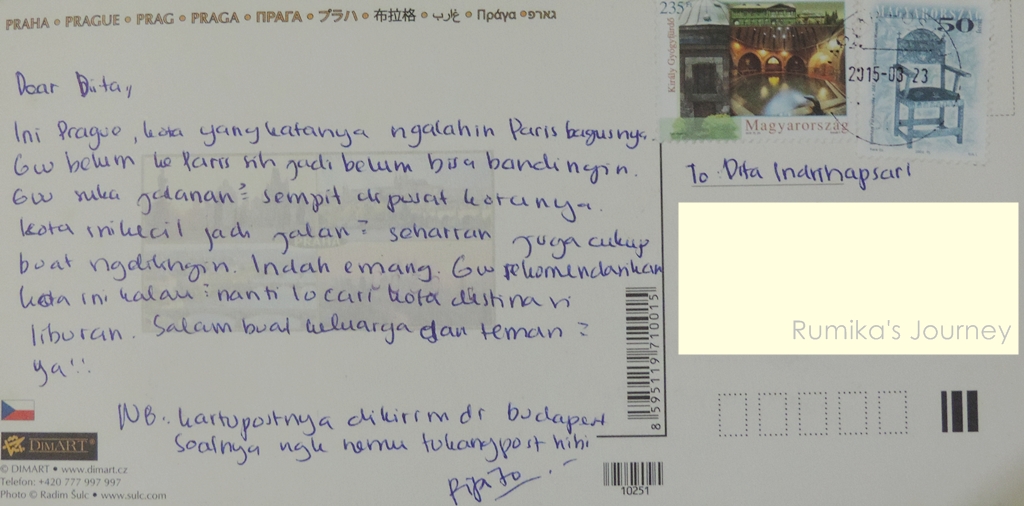 PRAHA • PRAGUE • PRAG • PRAGA • ПРАГА • プラハ • 布拉格 • Πράγα •פראג
235
Király Gyógyfürdő
Magyarország
MAGYARORSZÁG
50
2015-03-23
Dear Dita,
Ini Prague, kota yang katanya ngalahin Paris bagusnya.
Gw belum ke Paris sih jadi belum bisa bandingin.
Gw suka jalanan² sempit dipusat kotanya.
Kota ini kecil jadi jalan² seharian juga cukup
buat ngelilingin. Indah emang. Gw rekomendasikan
kota ini kalau² nanti lo cari kota destinasi
liburan. Salam buat keluarga dan teman²
ya!!
NB. kartuposnya dikirim di budapest
soalnya ngk nemu tukangpost hihi
To: Dita Indrihapsari
Rumika's Journey
8595119710015
DIMART®
© DIMART • www.dimart.cz
Telefon: +420 777 997 997
Photo © Radim Šulc • www.sulc.com
10251